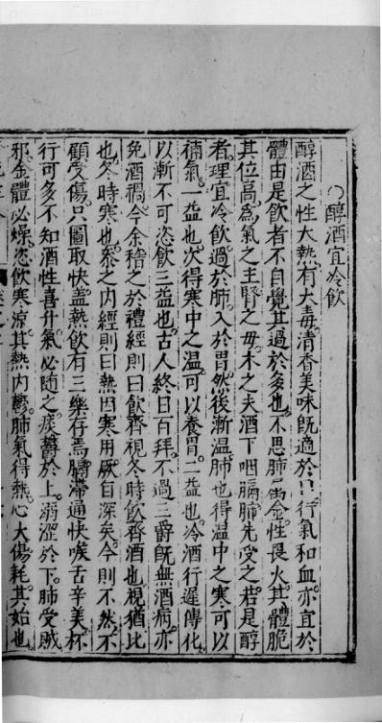 ○醇酒宜冷飲
醇酒之性大熱有大毒清香美味既適於口行氣和血亦宜於
體由是飲者不自覺其過於多也不思肺屬金性畏火其體脆
其位高為氣之主腎之母木之夫酒下咽膈肺先受之若是醇
者理宜冷飲過於肺入於胃然後漸溫肺也得溫中之寒可以
補氣一益也次得寒中之溫可以養胃二益也冷酒行遲傳化
以漸不可恣飲三益也古人終日百拜不過三爵既無酒病亦
免酒禍今余稽之於禮經則曰飲齊視冬時飲齊酒也視猶比
也冬時寒也參之内經則曰熱因寒用厥旨深矣今則不然不
顧受傷只圖取快蓋熱飲有三樂存焉膈滯通快喉舌辛美杯
行可多不知酒性喜升氣必隨之痰鬱於上溺澀於下肺受賊
邪金體必燥恣飲寒涼其熱内鬱肺氣得熱必大傷耗其始也